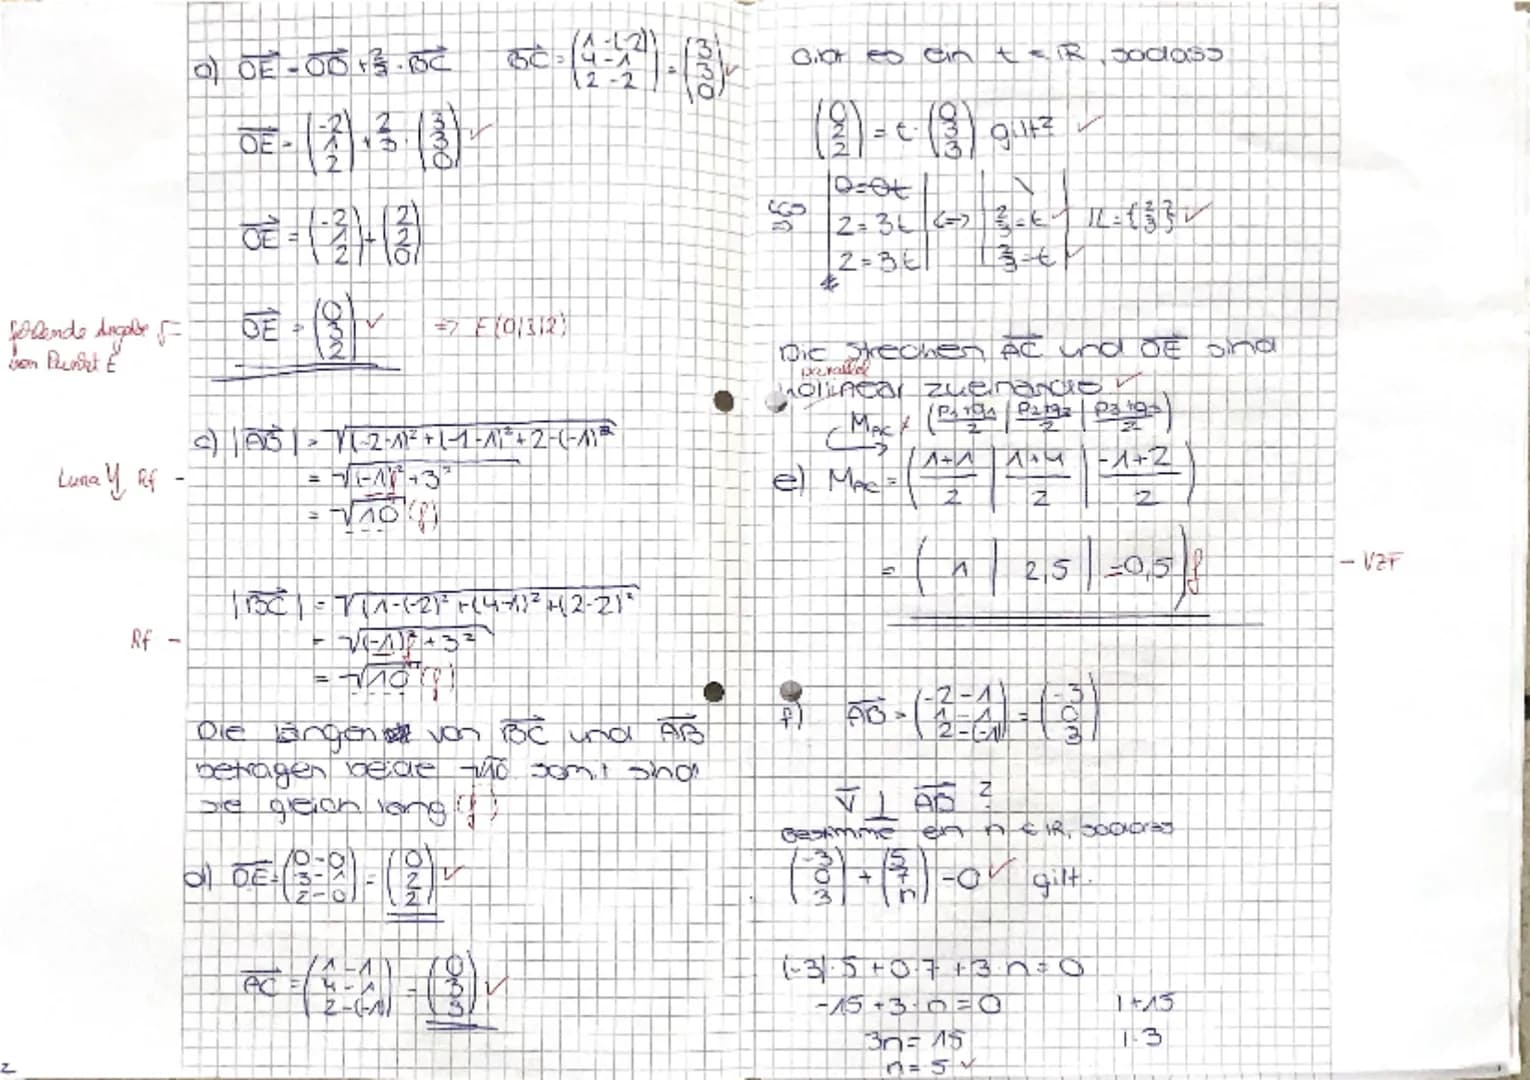 a) OE = OB + 2/3 · BC    BC = (1-(-2) / 4-1 / 2-2) = (3 / 3 / 0) ✓
OE = (-2 / 1 / 2) + 2/3 · (3 / 3 / 0) ✓
OE = (-2 / 1 / 2) + (2 / 2 / 0)
fehlende Angabe von Punkt E
OE = (0 / 3 / 2) ✓ => E(0|3|2)
c) |AB| = √(-2-1)² + (-1-1)² + 2-(-1)²
= √(-1)² + 3²
Rf -
= √10 (f)
|BC| = √(1-(-2)² + (4-1)² + (2-2)²
Rf - = √(-1)² + 3²
= √10 (f)
Die längen von BC und AB
betragen beide √10 somit sind
sie gleich lang (f)
d) DE = (0-0 / 3-1 / 2-0) = (0 / 2 / 2) ✓
AC = (1-1 / 4-1 / 2-(-1)) = (0 / 3 / 3) ✓
2
Gibt es ein t ∈ IR, sodass
(0 / 2 / 2) = t · (0 / 3 / 3) gilt? ✓
|0=0t / 2=3t / 2=3t| <=> |\ / 2/3=t / 2/3=t| IL={2/3} ✓
Die strecken AC und DE sind
parallel
kolinear zueinander ✓
M_AC (p1+q1/2 | p2+q2/2 | p3+q3/2)
e) M_AC = (1+1/2 | 1+4/2 | -1+2/2)
= (1 | 2,5 | -0,5) f - VZF
f) AB = (-2-1 / 1-1 / 2-(-1)) = (-3 / 0 / 3)
v ⊥ AB ?
Bestimme ein n ∈ IR, sodass
(-3 / 0 / 3) + (5 / 7 / n) = 0 ✓ gilt.
(-3)·5 + 0·7 + 3·n = 0
-15 + 3·n = 0 | +15
3n = 15 | :3
n = 5 ✓